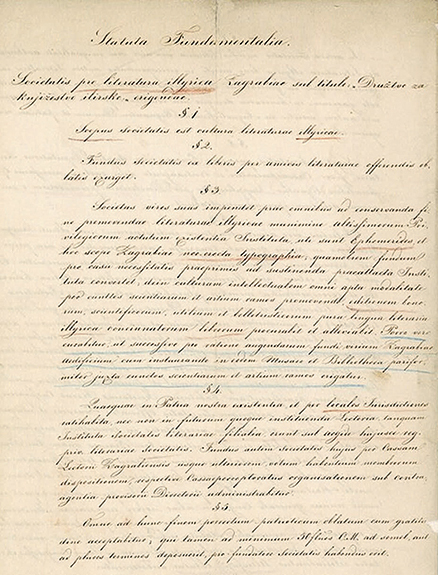 Statuta Fundamentalia.
Societatis pro literatura illyrica Zagrabiae sub titulo. Družtvo za
knjižestvo ilirsko erigendae.
§ 1
Scopus societatis est cultura literaturae illyricae.
§ 2.
Fundus societatis in liberis per amicos literaturae offerendis ob-
latis exurget.
§ 3
Societas vires suas impendet prae omnibus ad conservanda si-
ne promovendae literaturae illyricae munimine altissimorum Pri-
vilegiorum actutum existentia Instituta, ut sunt Ephemerides, et
hoc scopo Zagrabiae neo erecta typographia, quamobrem fundum
pro casu necessitatis praeprimis ad sustinenda praeattacta Insti-
tuta convertet, dein culturam intellectualem omni apta modalitate
per omnes scientiarum et artium ramos promovendo, editionem bono-
rum, scientificorum, utilium et belletristicorum pura lingua literaria
illyrica concinnatorum librorum procurabit et allevabit. Pro vero
curabitur, ut successive pro ratione augendorum fundi verum Zagrabiae
aedificium, cum instaurando in eodem Museo et Bibliotheca parifor-
miter juxta cunctos scientiarum et artium ramos erigatur.
§ 4.
Quaequae in Patria nostra existentia, et per locales Jurisdictiones
ratihabita, nec non in futurum quoque instituenda Lectoria tanquam
Instituta Societatis literariae filialia erunt sub aegide hujus
literariae Societatis. Fundus autem Societatis hujus per Cassam
Lectorii Zagrabiensis usque ulteriorem, votum habentium membrorum
dispositionem, respective Cassaeperceptoratus organisationem sub contra-
agentia provisorii Directorii administrabitur.
§ 5
Omne ad hunc finem porrectum patrioticum oblatum cum gratitu-
dine acceptabitur; qui tamen ad minimum 50 flnos C.M. ad semel, aut
ad plures terminos deposuerit, pro fundatore Societatis habendus erit.